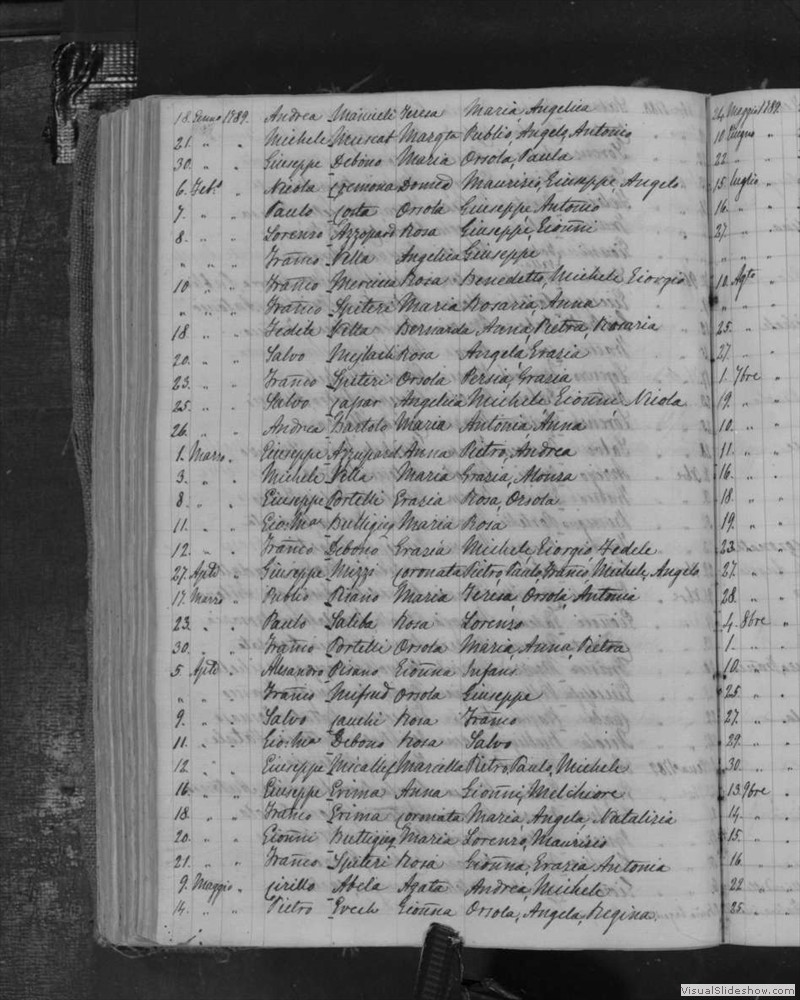 18. Genno 1789. Andrea Mamieli Teresa Maria, Angelica
21. " " Michele Muscat Margta Publio, Angelo, Antonio
30. " " Giuseppe Debono Maria Orsola, Paula
6. Feb.o " Nicola Cremona Domca Maurisio, Giuseppe, Angelo
7. " " Paulo Costa Orsola Giuseppe Antonio
8. " " Lorenzo Azzopard Rosa Giuseppe, Gionni
" " " Franco Vella Angelica Giuseppe
10 " " Franco Mercieca Rosa Benedetto, Michele Giorgio
" " " Franco Spiteri Maria Rosaria, Anna
18. " " Fedele Vella Bernarda Anna, Pietra, Rosaria
20. " " Salvo Mejlach Rosa Angela, Grazia
23. " " Franco Spiteri Orsola Persia, Grazia
25. " " Salvo Caspar Angelica Michele Gionni Niola
26. " " Andrea Bartolo Maria Antonia, Anna
1. Marzo. Giuseppe Azzopard Anna Pietro, Andrea
3. " " Michele Vella Maria Grazia,
8. " " Giuseppe Portelli Grazia Rosa, Orsola
11. " " Gio:Ma Buttigieg Maria Rosa
12. " " Franco Debono Grazia Michele, Giorgio, Fedele
27. Aple " Giuseppe Mizzi Coronata Pietro, Paulo, Franco, Michele, Angelo
17. Marzo " Publio Piano Maria Teresa, Orsola, Antonia
23. " " Paulo Saliba Rosa Lorenzo
30. " " Franco Portelli Orsola Maria, Anna, Pietra
5. Aple " Alesandro Pisano Gionna Infans
" " " Franco Mifsud Orsola Giuseppe
9. " " Salvo Cauchi Rosa Franco
11. " " Gio:Ma Debono Rosa Salvo
12 " " Giuseppe Micallef Marcella Pietro, Paulo, Michele
16. " " Giuseppe Grima Anna Gionni, Melchiore
18. " " Franco Grima Coronata Maria, Angela, Natalizia
20. " " Gionni Buttigieg Maria Lorenzo, Maurisio
21. " " Franco Spiteri Rosa Gionna, Grazia, Antonia
9. Maggio " Cirillo Abela Agata Andrea, Michele
14. " " Pietro Grech Gionna Orsola, Angela, Regina.
24 Maggio 1789.
10 Giugno "
22 " "
15 Luglio "
16. " "
27. " "
" " "
10. Agto "
" " "
25. " "
27. " "
1. 7bre "
19. " "
10. " "
11. " "
16. " "
18. " "
19. " "
23. " "
27. " "
28. " "
4. 8bre "
1. " "
10. " "
25. " "
27. " "
29. " "
30. " "
13. 9bre "
14. " "
15. " "
16 " "
22 " "
25. " "
VisualSlideshow.com